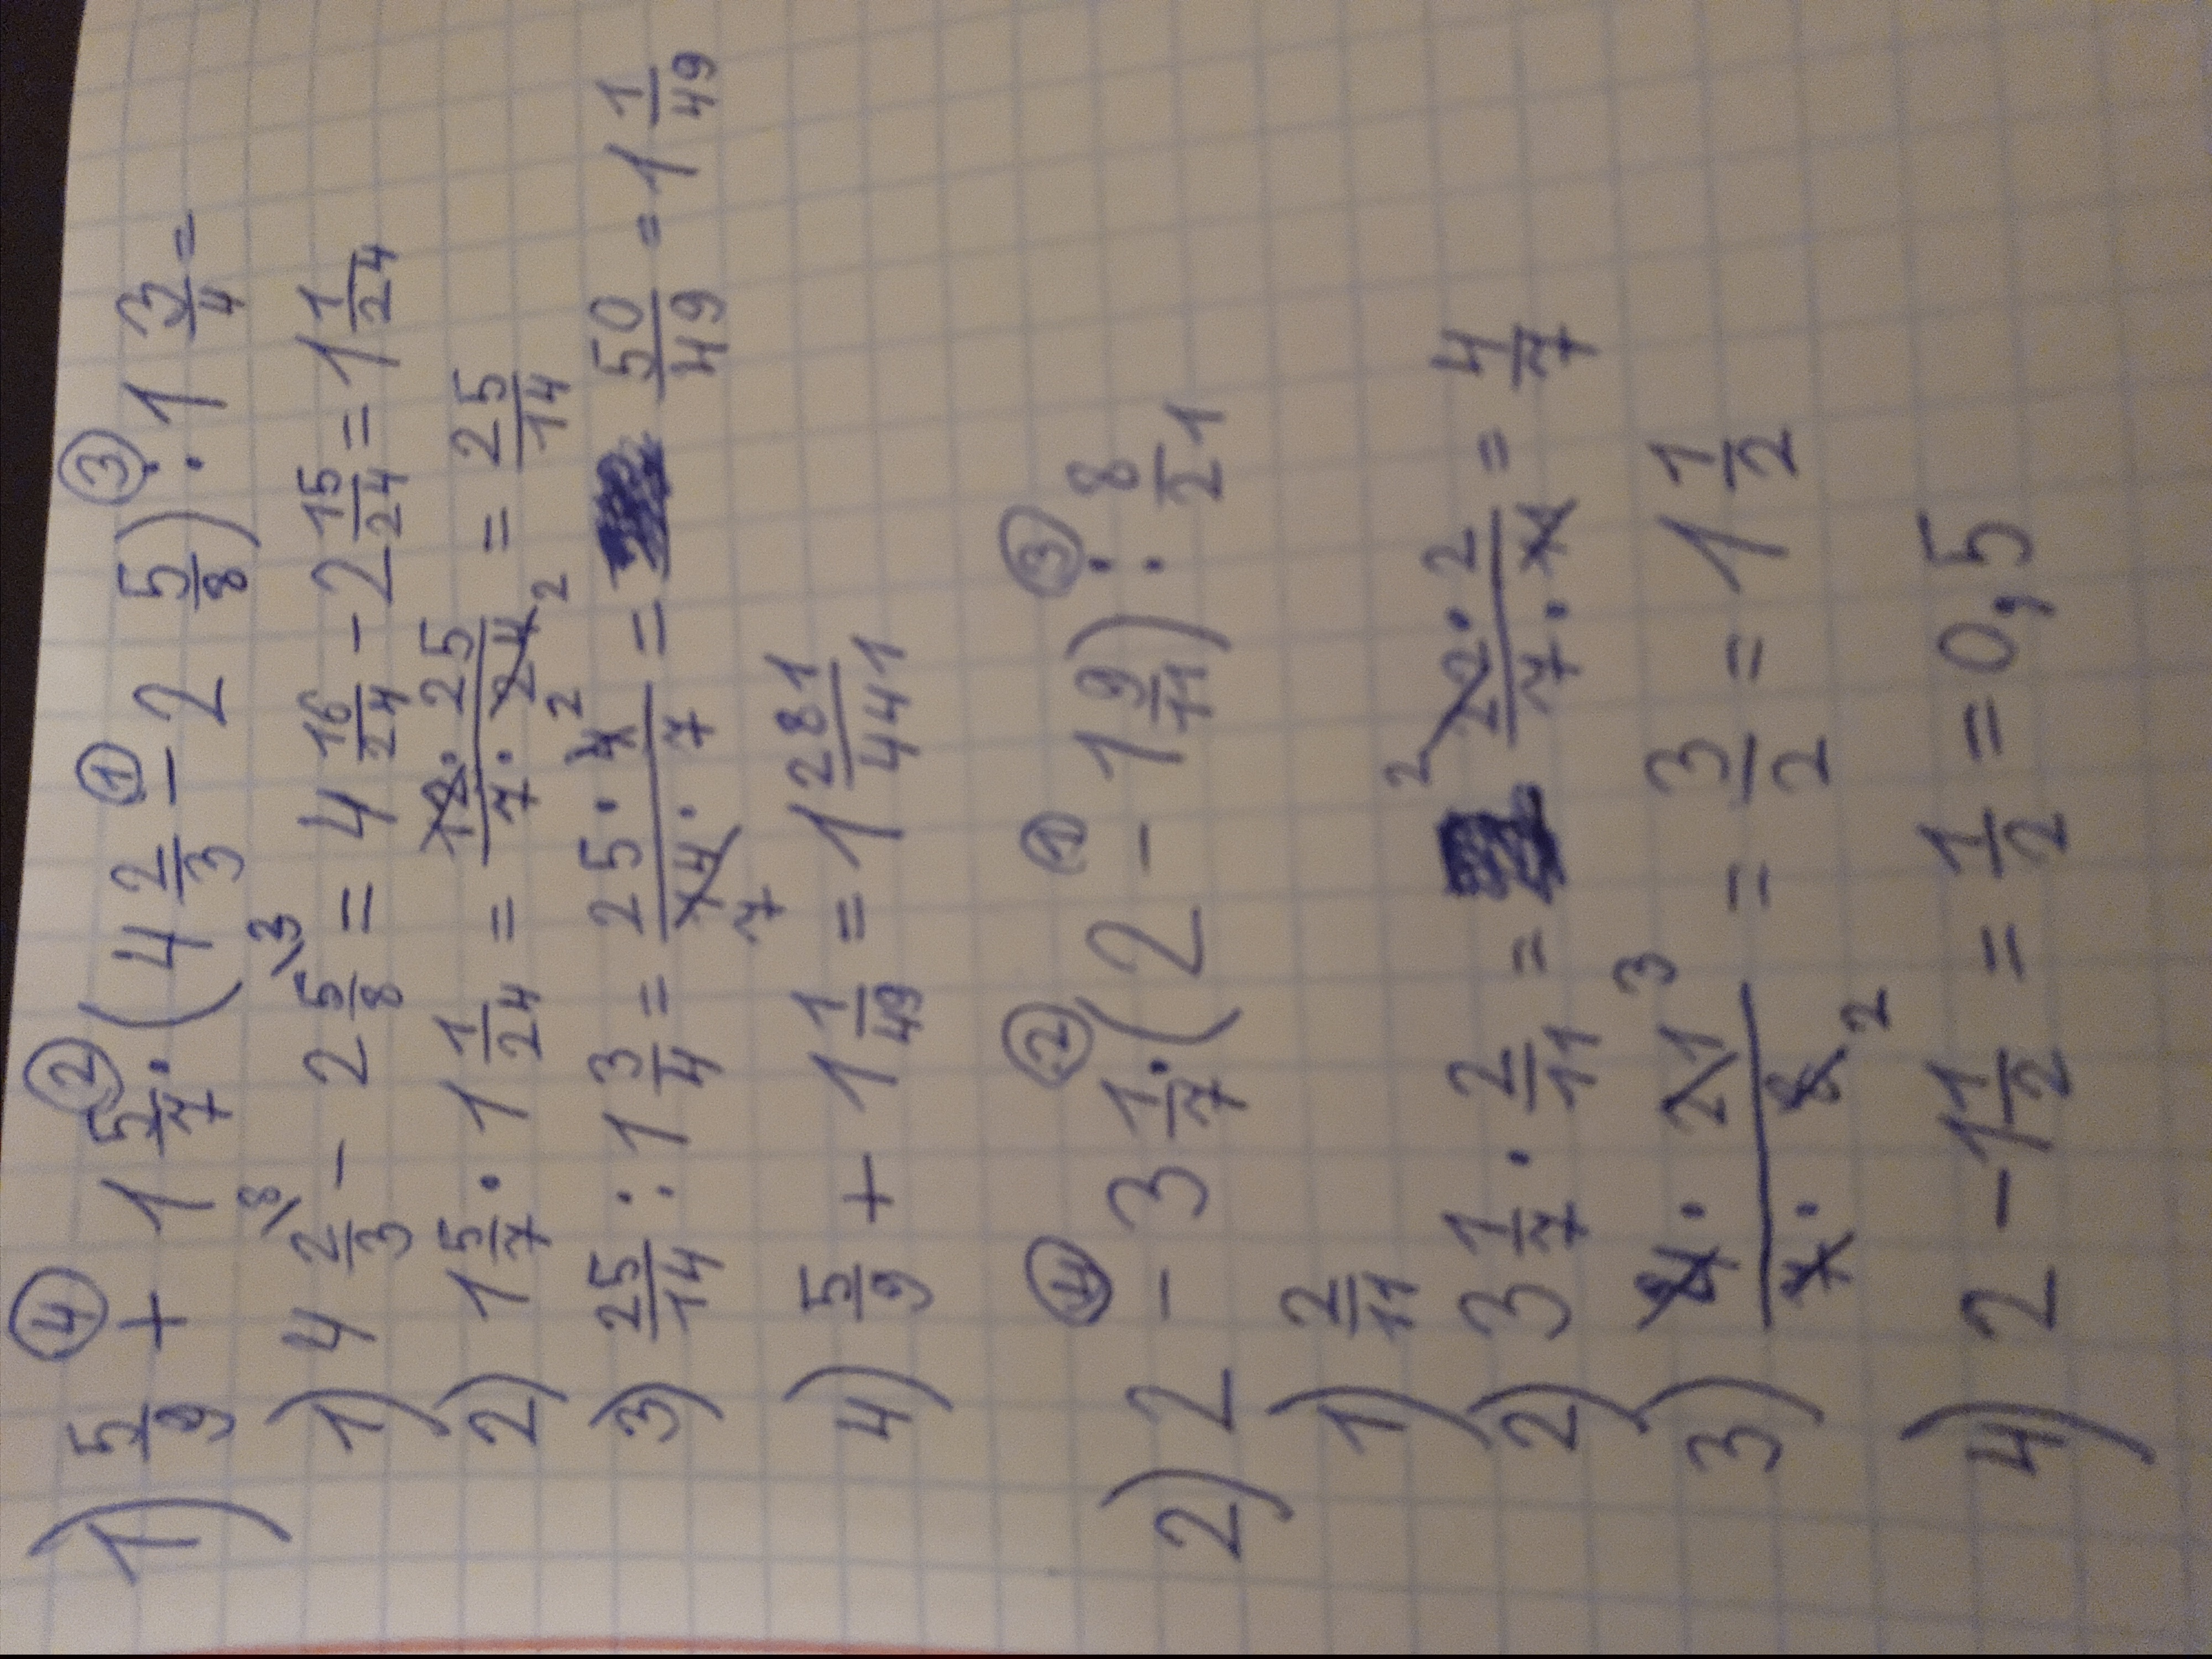 1) 5/9 + 1 5/7 · (4 2/3 − 2 5/8) : 1 3/4 =
④ ② ① ③
1) 4 2/3 \8 − 2 5/8 \3 = 4 16/24 − 2 15/24 = 1 1/24
2) 1 5/7 · 1 1/24 = 12 · 25 / 7 · 24 2 = 25/14
3) 25/14 : 1 3/4 = 25 · 4 2 / 14 7 · 7 = 50/49 = 1 1/49
4) 5/9 + 1 1/49 = 1 281/441
2) 2 − 3 1/7 · (2 − 1 9/11) : 8/21
④ ② ① ③
1) 2/11
2) 3 1/7 · 2/11 = 2 22 · 2 / 7 · 11 = 4/7
3) 4 · 21 3 / 7 · 8 2 = 3/2 = 1 1/2
4) 2 − 1 1/2 = 1/2 = 0,5